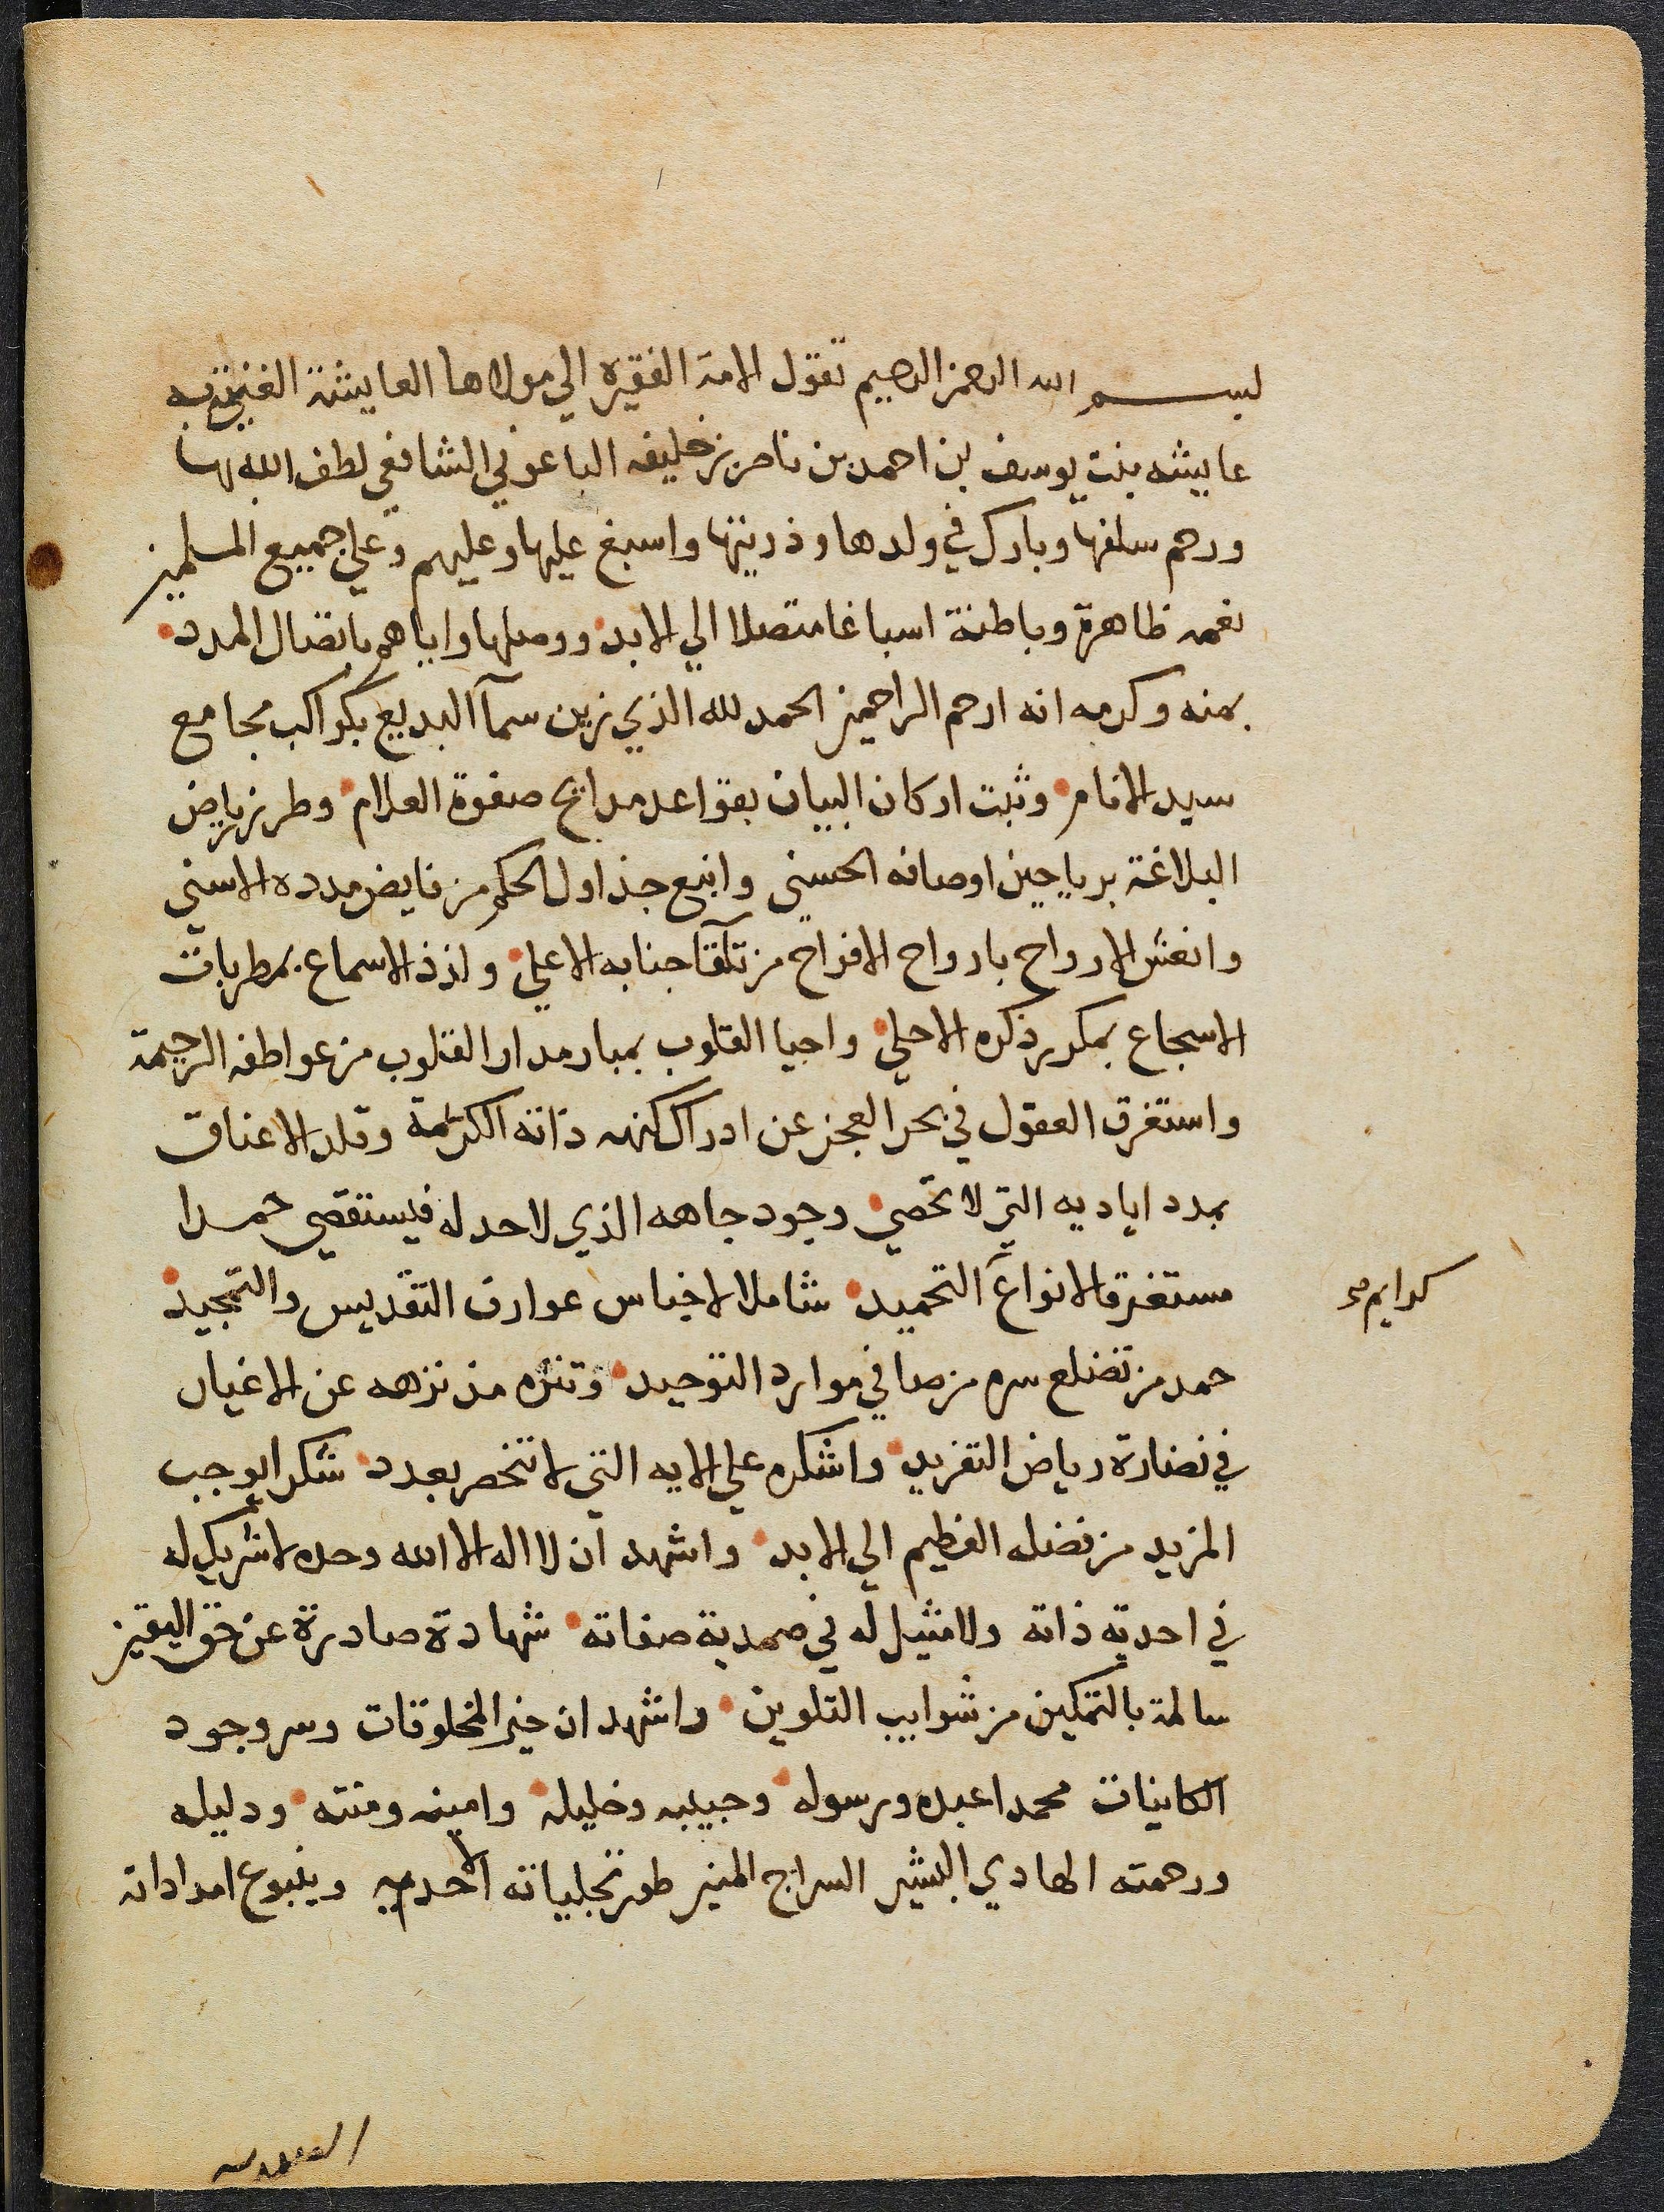 بسم الله الرحمن الرحيم تقول الامة الفقيرة الي مولاها العايشة الغنيّة به
عايشه بنت يوسف بن احمد بن ناصر بن خليفه الباعوني الشافعي لطف الله بها
ورحم سلفها وبارك في ولدها وذريتها واسبغ عليها وعليهم وعلي جميع المسلمين
نعمه ظاهرة وباطنة اسباغا متصلا الي الابد ووصلها واياهم باتصال المدد
بمنه وكرمه انه ارحم الراحمين الحمد لله الذي زين سمآ البديع بكواكب مجامع
سيد الانام وثبت اركان البيان بقواعد مدايح صفوة العلام وطرز رياض
البلاغة برياحين اوصافه الحسني وانبع جداول الحكم من فايض مدده الاسني
وانعش الارواح بارواح الافراح من تلقا جنابه الاعلي ولذذ الاسماع بمطربات
الاسجاع بمكرر ذكره الاحلي واحيا القلوب بمبار مدار القلوب من عواطفه الرحيمة
واستغرق العقول في بحر العجز عن ادراك كنه ذاته الكريمة وقلد الاعناق
بمدد اياديه التي لا تحصي وجود جاهه الذي لا حد له فيستقصي حمدا
مستغرقا لانواع التحميد شاملا لاجناس عوارف التقديس والتمجيد
كرايم
حمد من تضلع سره من صافي موارد التوحيد وتنزه مذ نزهه عن الاغيار
في نضارة رياض التفريد واشكره علي الايه التي لا تنحصر بعدد شكرا يوجب
المزيد من فضله العظيم الي الابد واشهد ان لا اله الا الله وحده لا شريك له
في احدية ذاته ولا مثيل له في صمدية صفاته شهادة صادرة عن حق اليقين
سالمة بالتمكين من شوايب التلوين واشهد ان خير المخلوقات وسر وجود
الكاينات محمدا عبده ورسوله وحبيبه وخليله وامينه ومنته ودليله
ورحمته الهادي البشير السراج المنير طور تجلياته الاحدية وينبوع امداداته